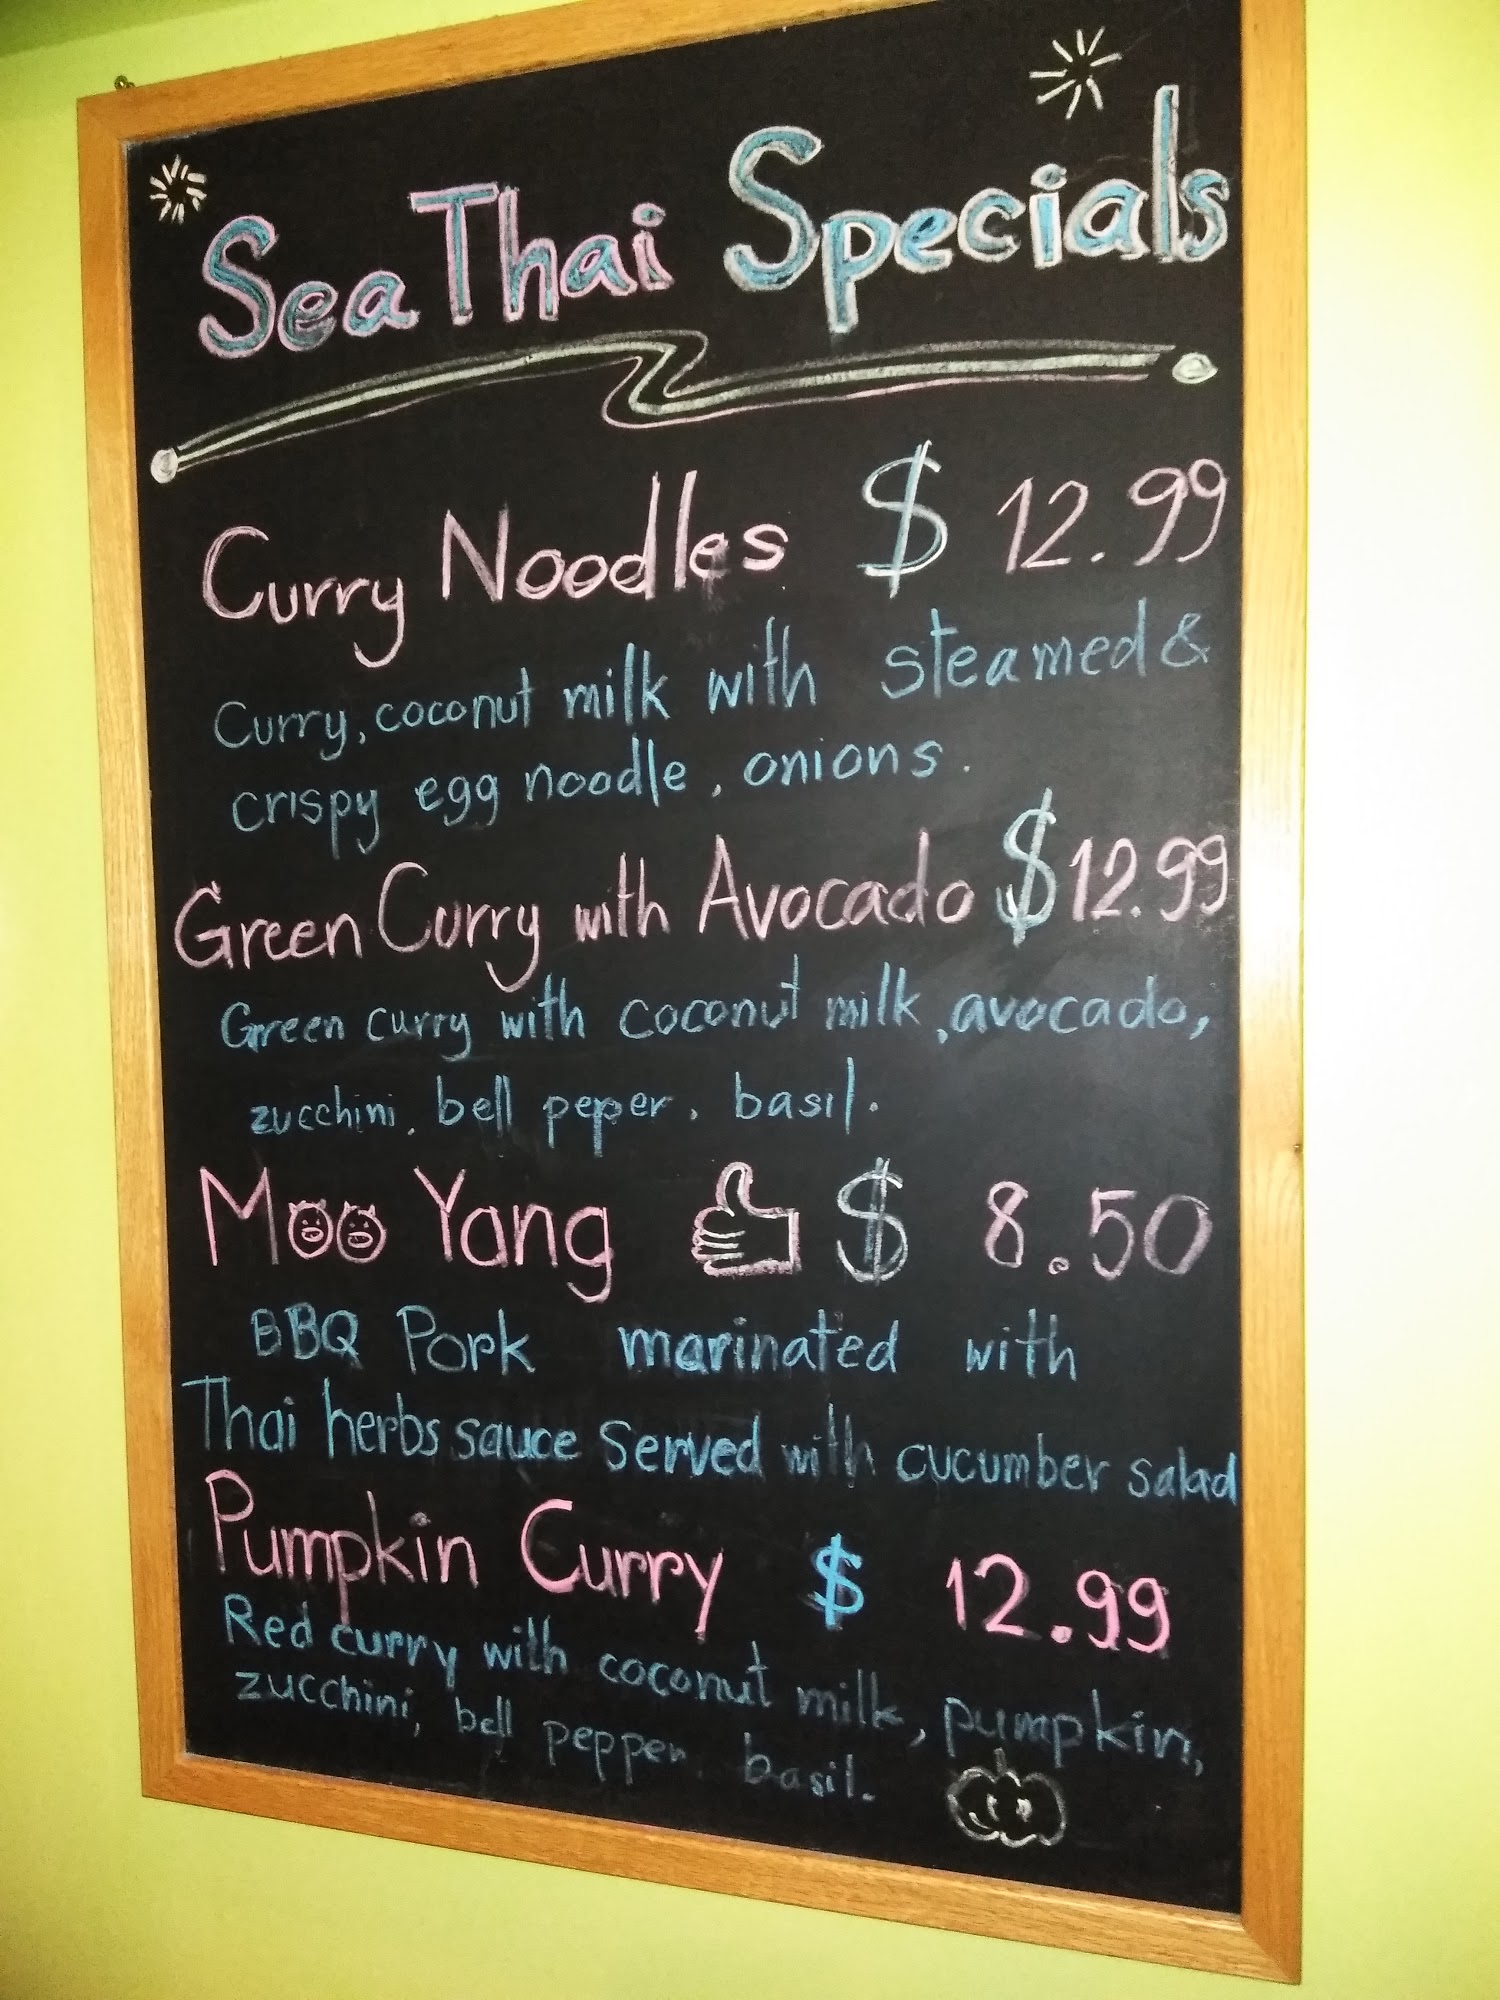 Sea Thai Specials
Curry Noodles $ 12.99
Curry, coconut milk with steamed &
crispy egg noodle, onions.
Green Curry with Avocado $12.99
Green curry with coconut milk, avocado,
zucchini, bell peper, basil.
Moo Yang $ 8.50
BBQ Pork marinated with
Thai herbs sauce Served with cucumber salad
Pumpkin Curry $ 12.99
Red curry with coconut milk, pumpkin,
zucchini, bell pepper, basil.